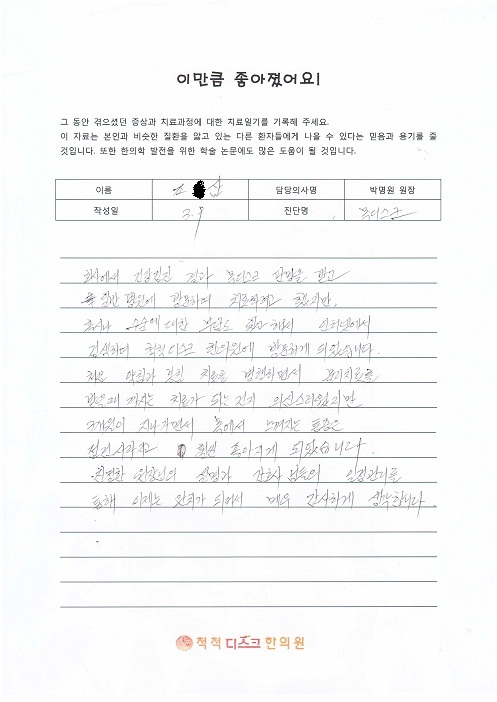 이만큼 좋아졌어요!
그 동안 겪으셨던 증상과 치료과정에 대한 치료일기를 기록해 주세요.
이 자료는 본인과 비슷한 질환을 앓고 있는 다른 환자들에게 나을 수 있다는 믿음과 용기를 줄
것입니다. 또한 한의학 발전을 위한 학술 논문에도 많은 도움이 될 것입니다.
이름 담당의사명 박명원 원장
작성일 3.9 진단명 목디스크
회사에서 건강검진 결과 목디스크 판정을 받고
일반 병원에 방문하여 치료하려고 했지만,
수술에 대한 부담도 있고 해서 인터넷에서
검색하여 척척디스크 한의원에 방문하게 되었습니다.
처음 약침과 봉침 치료를 병행하면서 물리치료를
받을때 까지는 치료가 되는 건지 의심스러웠지만
3개월이 지나가면서 목에서 느껴지는 통증은
점건 사라지고 훨씬 좋아지게 되었습니다.
친절한 원장님의 설명과 간호사님들의 일정관리를
통해 이제는 완치가 되어서 매우 감사하게 생각합니다.
척척디스크한의원